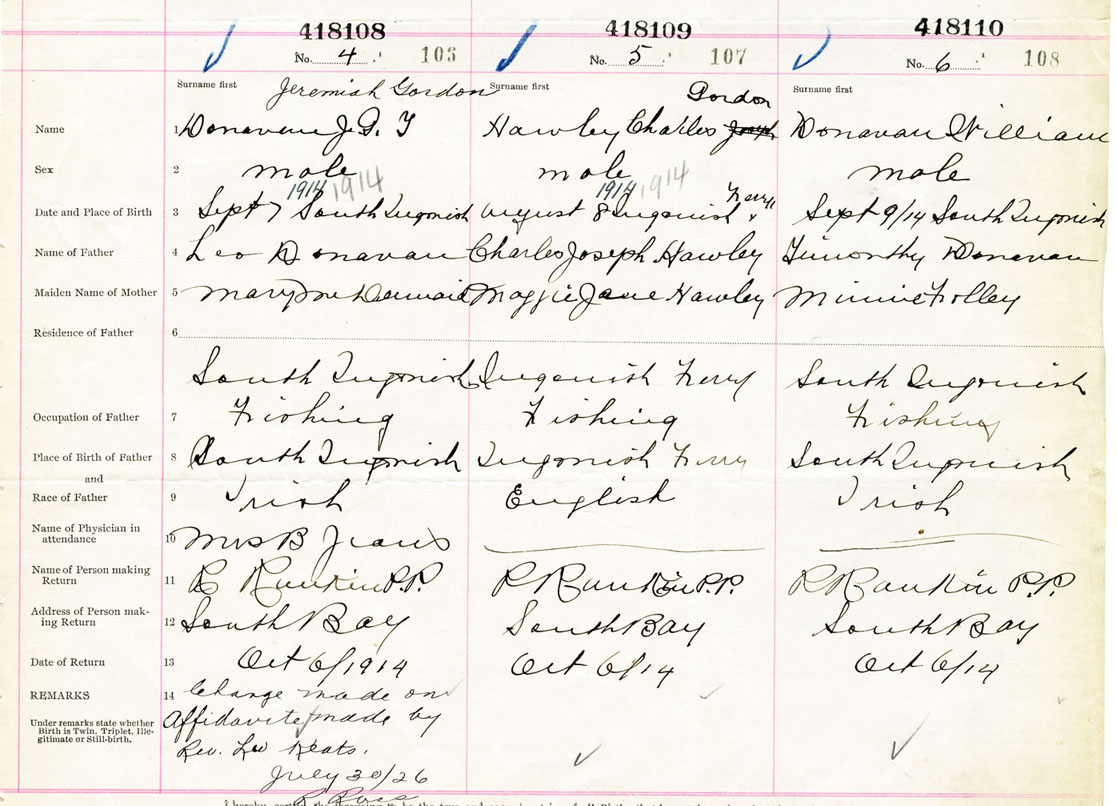 418108 418109 418110
No. 4 106 No. 5 107 No. 6 108
Surname first Jeremiah Gordon Surname first Gordon Surname first
Name 1 Donavan J. G. Hawley Charles Joseph Donavan William
Sex 2 male male male
1914 1914 1914 1914 Ferry
Date and Place of Birth 3 Sept 7 South Ingonish August 8 Ingonish Sept 9/14 South Ingonish
Name of Father 4 Leo Donavan Charles Joseph Hawley Timorthy Donavan
Maiden Name of Mother 5 Mary Maggie Jane Hawley Minnie Folley
Residence of Father 6
South Ingonish Ingonish Ferry South Ingonish
Occupation of Father 7 Fishing Fishing Fishing
Place of Birth of Father 8 South Ingonish Ingonish Ferry South Ingonish
and
Race of Father 9 Irish English Irish
Name of Physician in
attendance 10 Mrs B
Name of Person making
Return 11 R Rankin P.P. R Rankin P.P. R Rankin P.P.
Address of Person mak-
ing Return 12 South Bay South Bay South Bay
Date of Return 13 Oct 6/1914 Oct 6/14 Oct 6/14
REMARKS 14 Change made on
Under remarks state whether
Birth is Twin, Triplet, Ille-
gitimate or Still-birth.
Affidavite made by
Rev. Leo Keats.
July 30/26
R Ross
I hereby